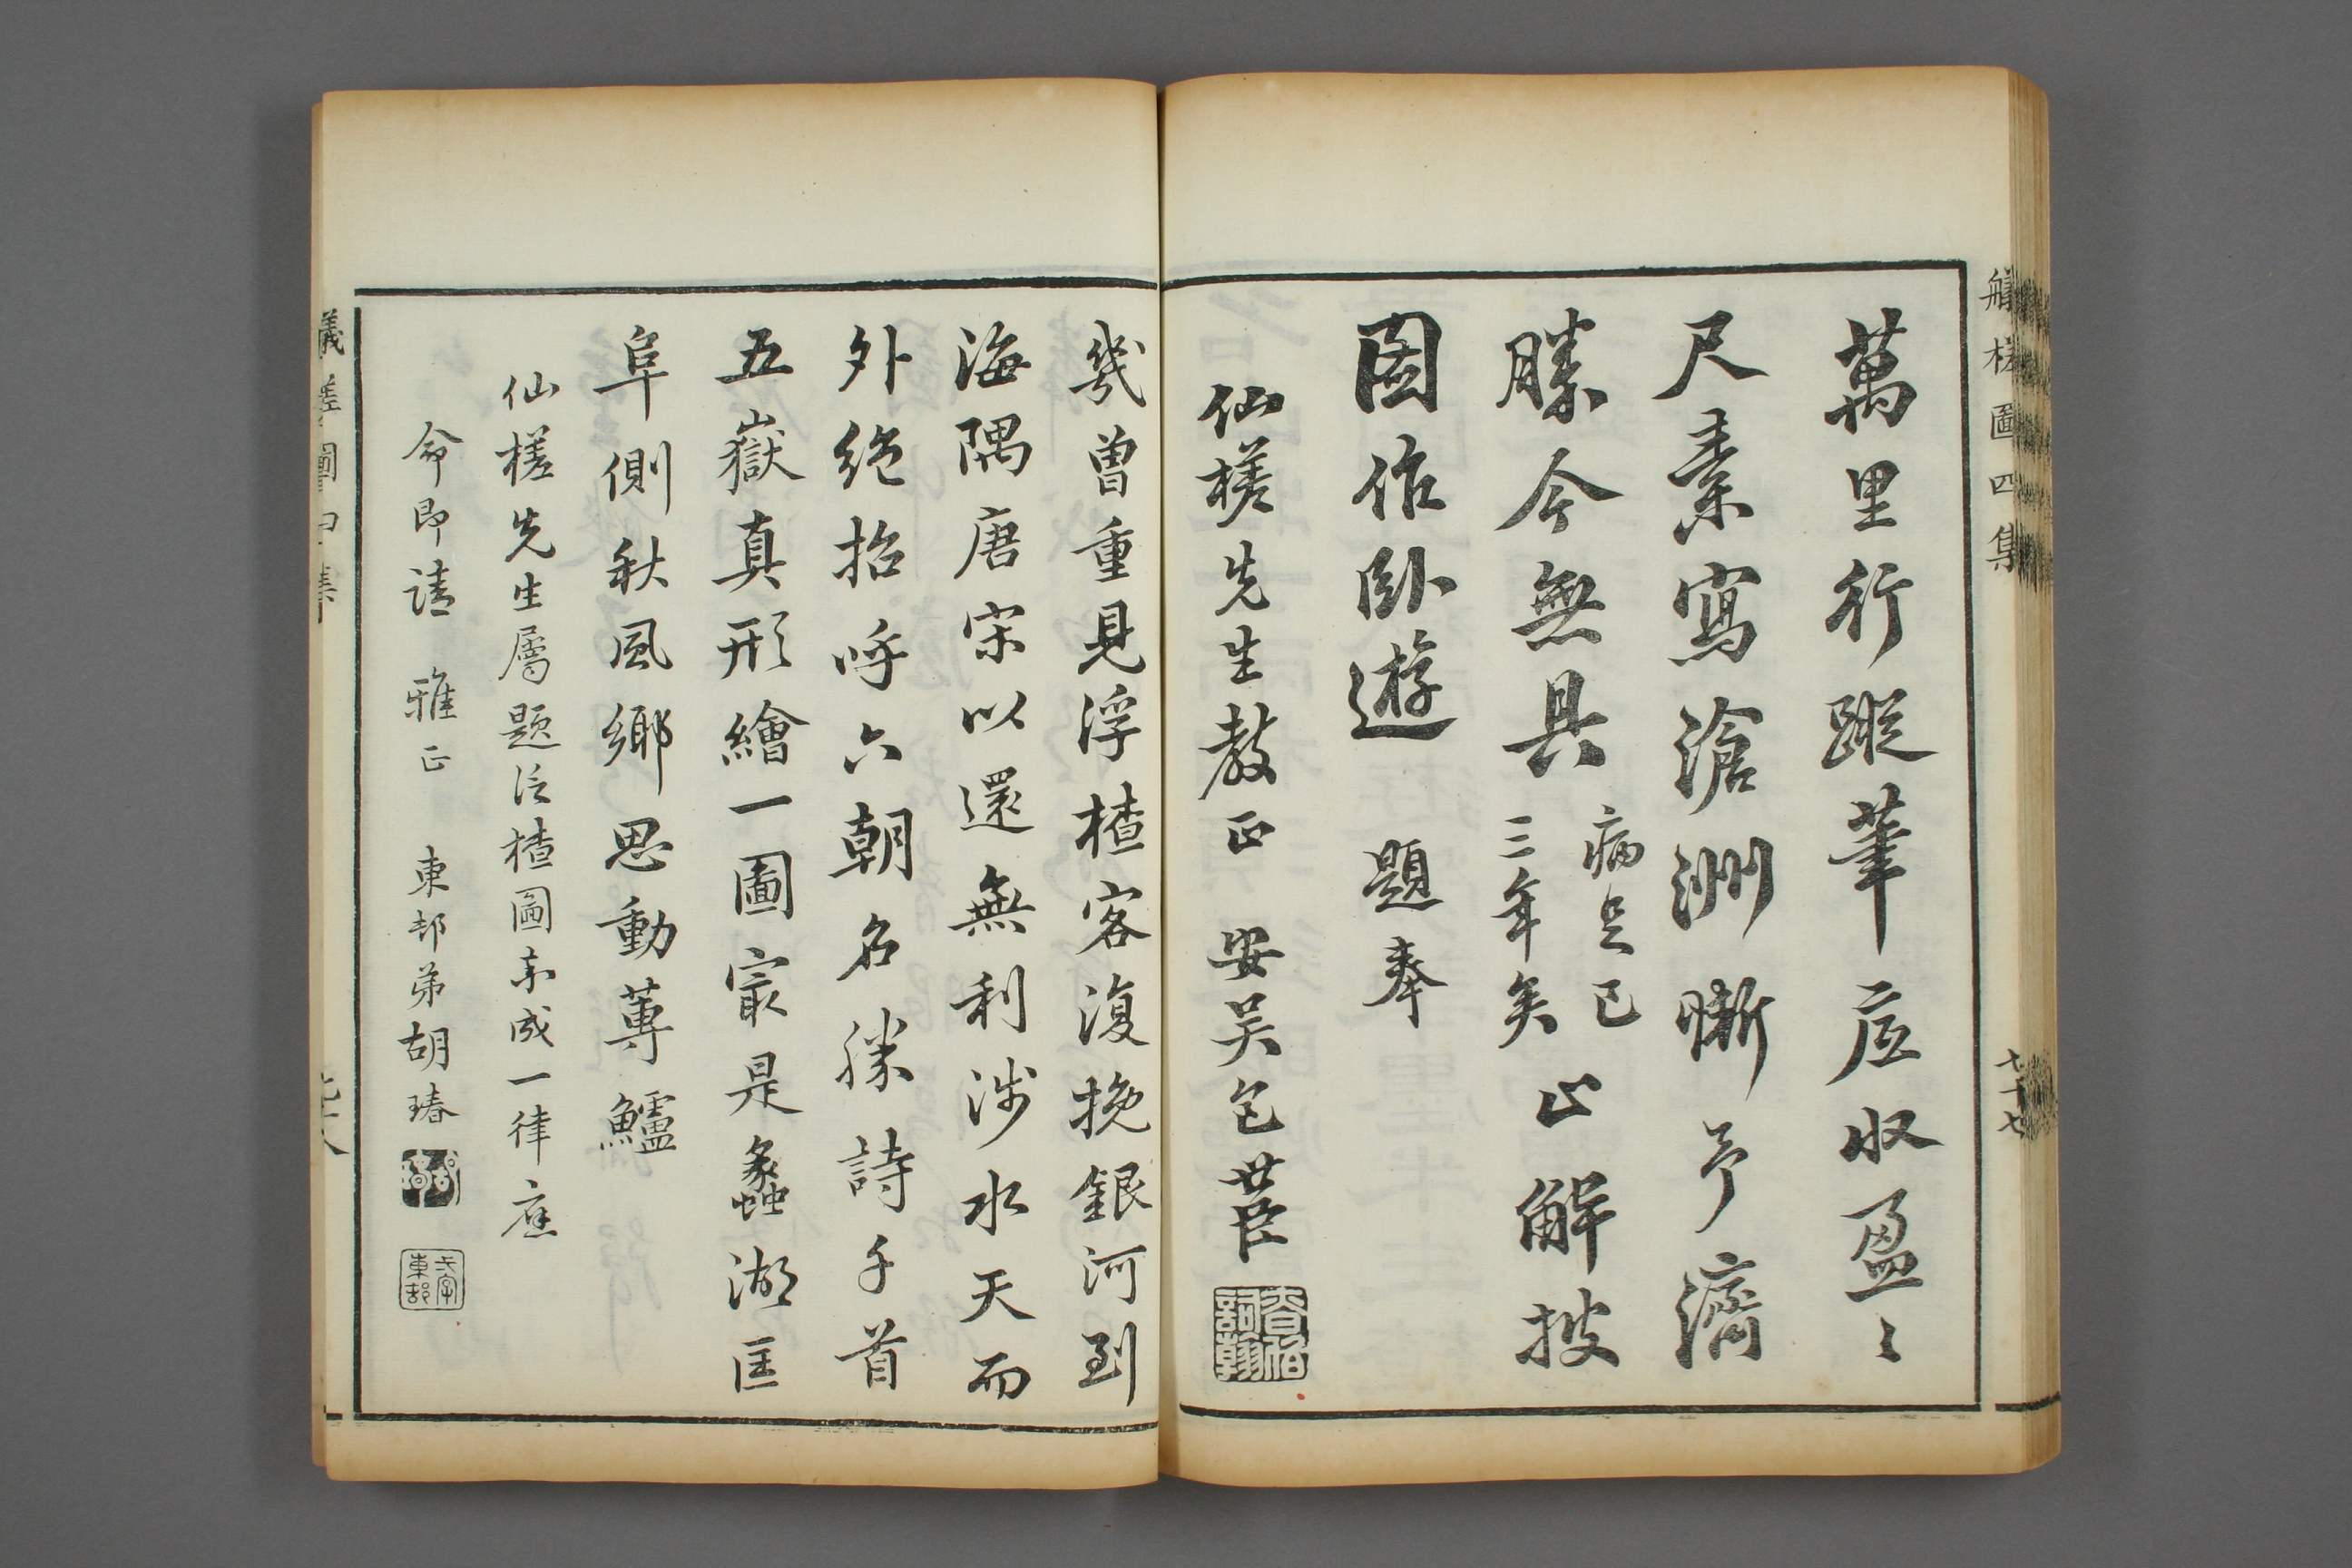 艤槎圖四集
七十七
萬里行蹤筆底收盈〻
尺素寫滄洲慚予濟
勝今無具
病足已
三年矣
止解披
圖作臥遊 題奉
仙槎先生教正 安吳包世臣
幾曾重見浮楂客復挽銀河到
海隅唐宋以還無利涉水天而
外絶招呼六朝名勝詩千首
五嶽真形繪一圖寂是蠡湖匡
阜側秋風鄉思動蓴鱸
仙槎先生屬題泛楂圖率成一律應
命即請 雅正 東邨弟胡瑃
弌字
東邨
艤槎圖四集